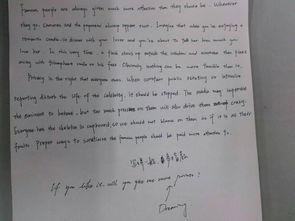 Famous people are always given much more attention than they should be. Wherever
they go, Cameras and the paparazzi always appear soon. Imagine that while you're enjoying a
romantic candle-lit dinner with your lover and you're about to tell her how much you
love her. In this very time, a flash shoots up outside the window and someone
away with triumphant smile on his face. Obviously nothing can be more terrible than it.
Privacy is the right that everyone owns. When constant public reporting or intensive
reporting disturb the life of the celebrity, it should be stopped. The media may supervise
the eminent to behave, but too much pressure on them will also drive them crazy.
Everyone has the skeleton in cupboard, so we should not blame on them as if it is all their
faults. Proper ways to scrutinize the famous people should be paid more attention to.
If you like it, will you give me one more prize?
Dreaming